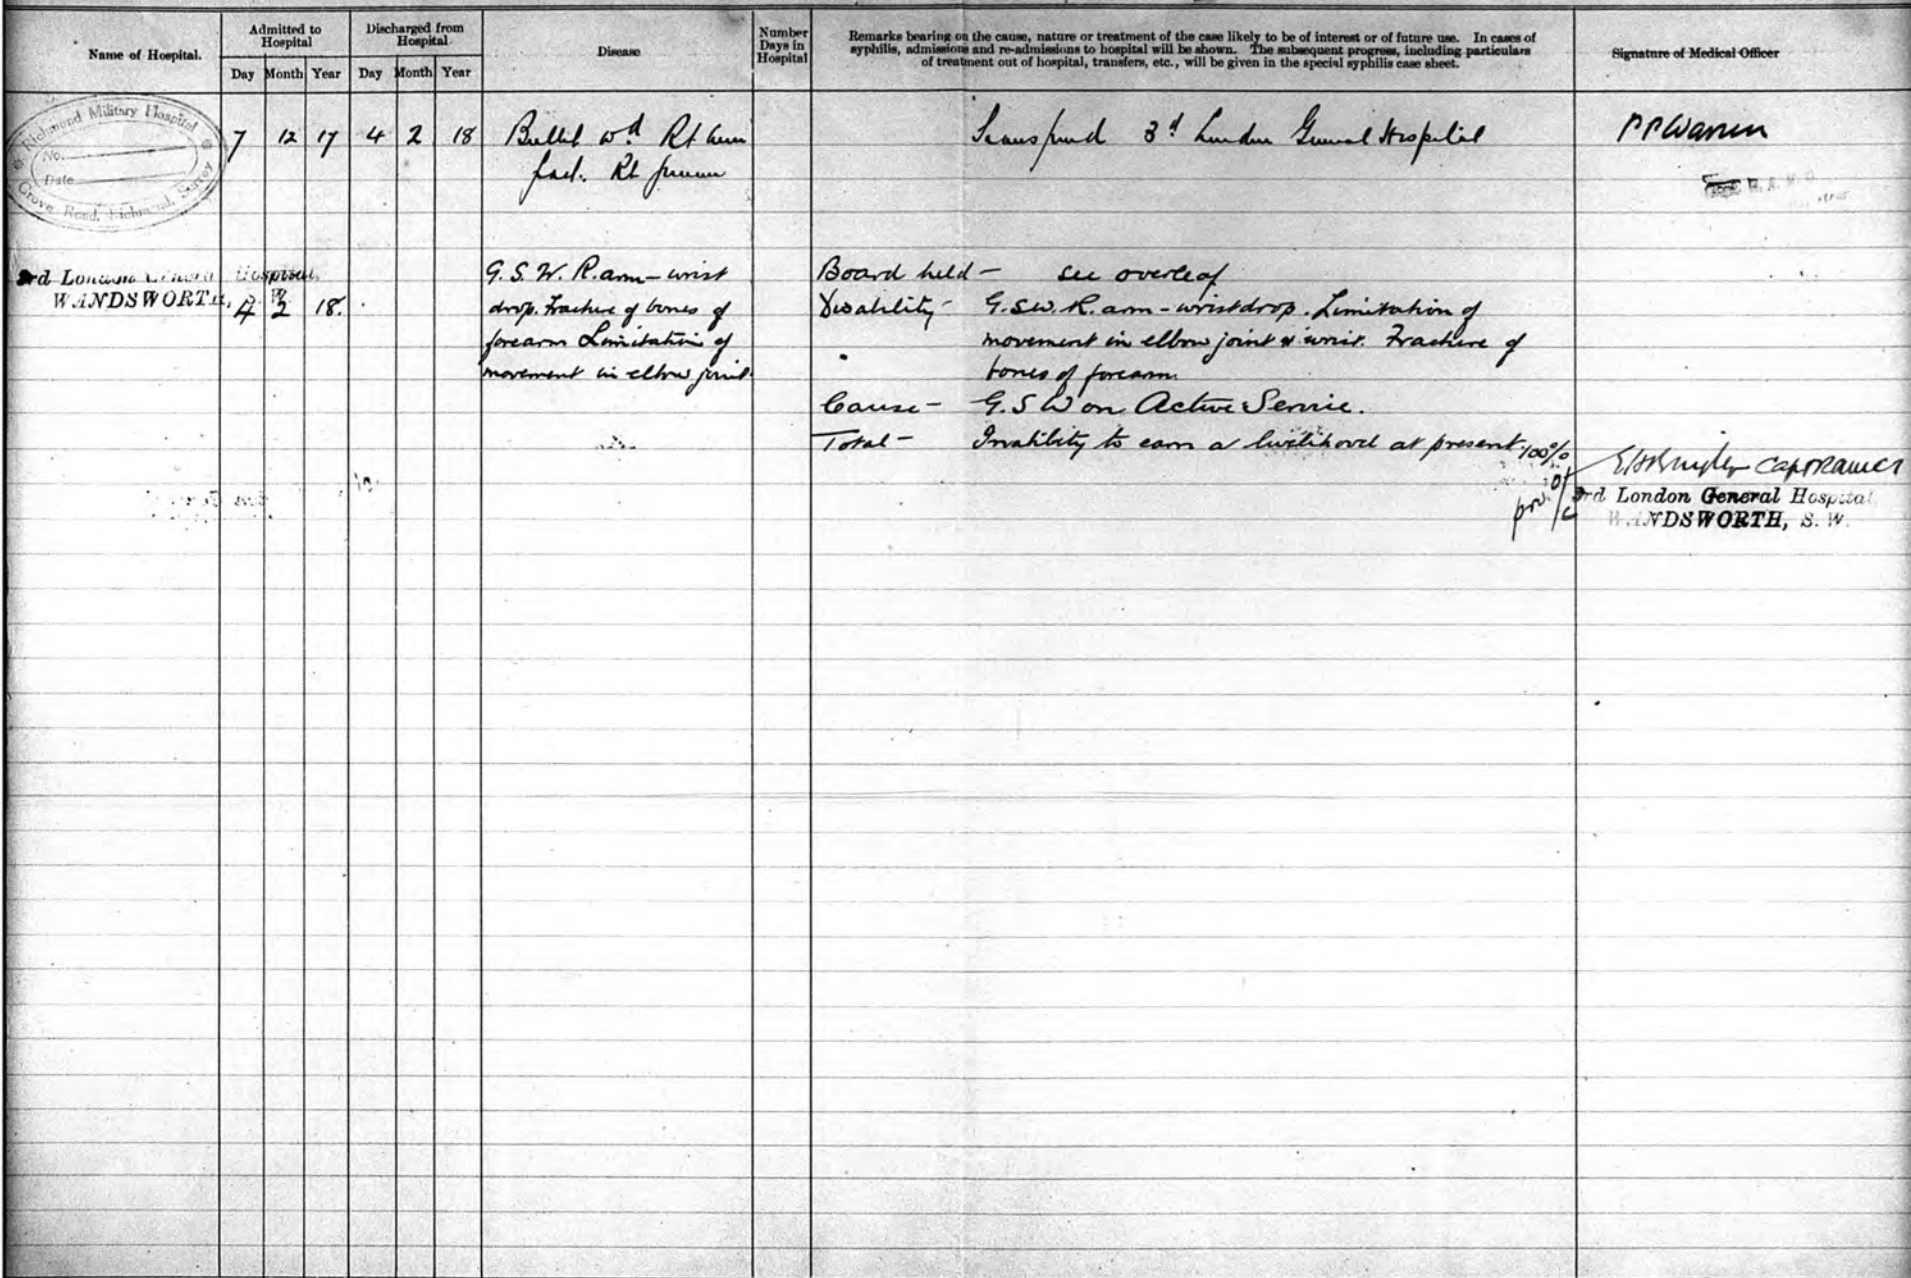 Name of Hospital.
Admitted to Hospital
Day Month Year
Discharged from Hospital
Day Month Year
Disease
Number Days in Hospital
Remarks bearing on the cause, nature or treatment of the case likely to be of interest or of future use. In cases of
syphilis, admissions and re-admissions to hospital will be shown. The subsequent progress, including particulars
of treatment out of hospital, transfers, etc., will be given in the special syphilis case sheet.
Signature of Medical Officer
Richmond Military Hospital
No.
Date
Grove Road, Richmond, Surrey
7 12 17 4 2 18 Bullet wd. Rt arm
3d London General Hospital
P P Warren
Rt
3rd London General Hospital,
WANDSWORTH, S.W.
4 2 18.
G. S. W. R. arm - wrist
drop. Fracture of bones of
forearm Limitation of
movement in elbow joint.
Board held - see overleaf
Disability - G.S.W. R. arm - wristdrop. Limitation of
movement in elbow joint & wrist. Fracture of
bones of forearm
Cause - G.S W on Active Service.
Total - Inability to earn a livelihood at present. 100%
Capt RAMCT
3rd London General Hospital,
WANDSWORTH, S. W.